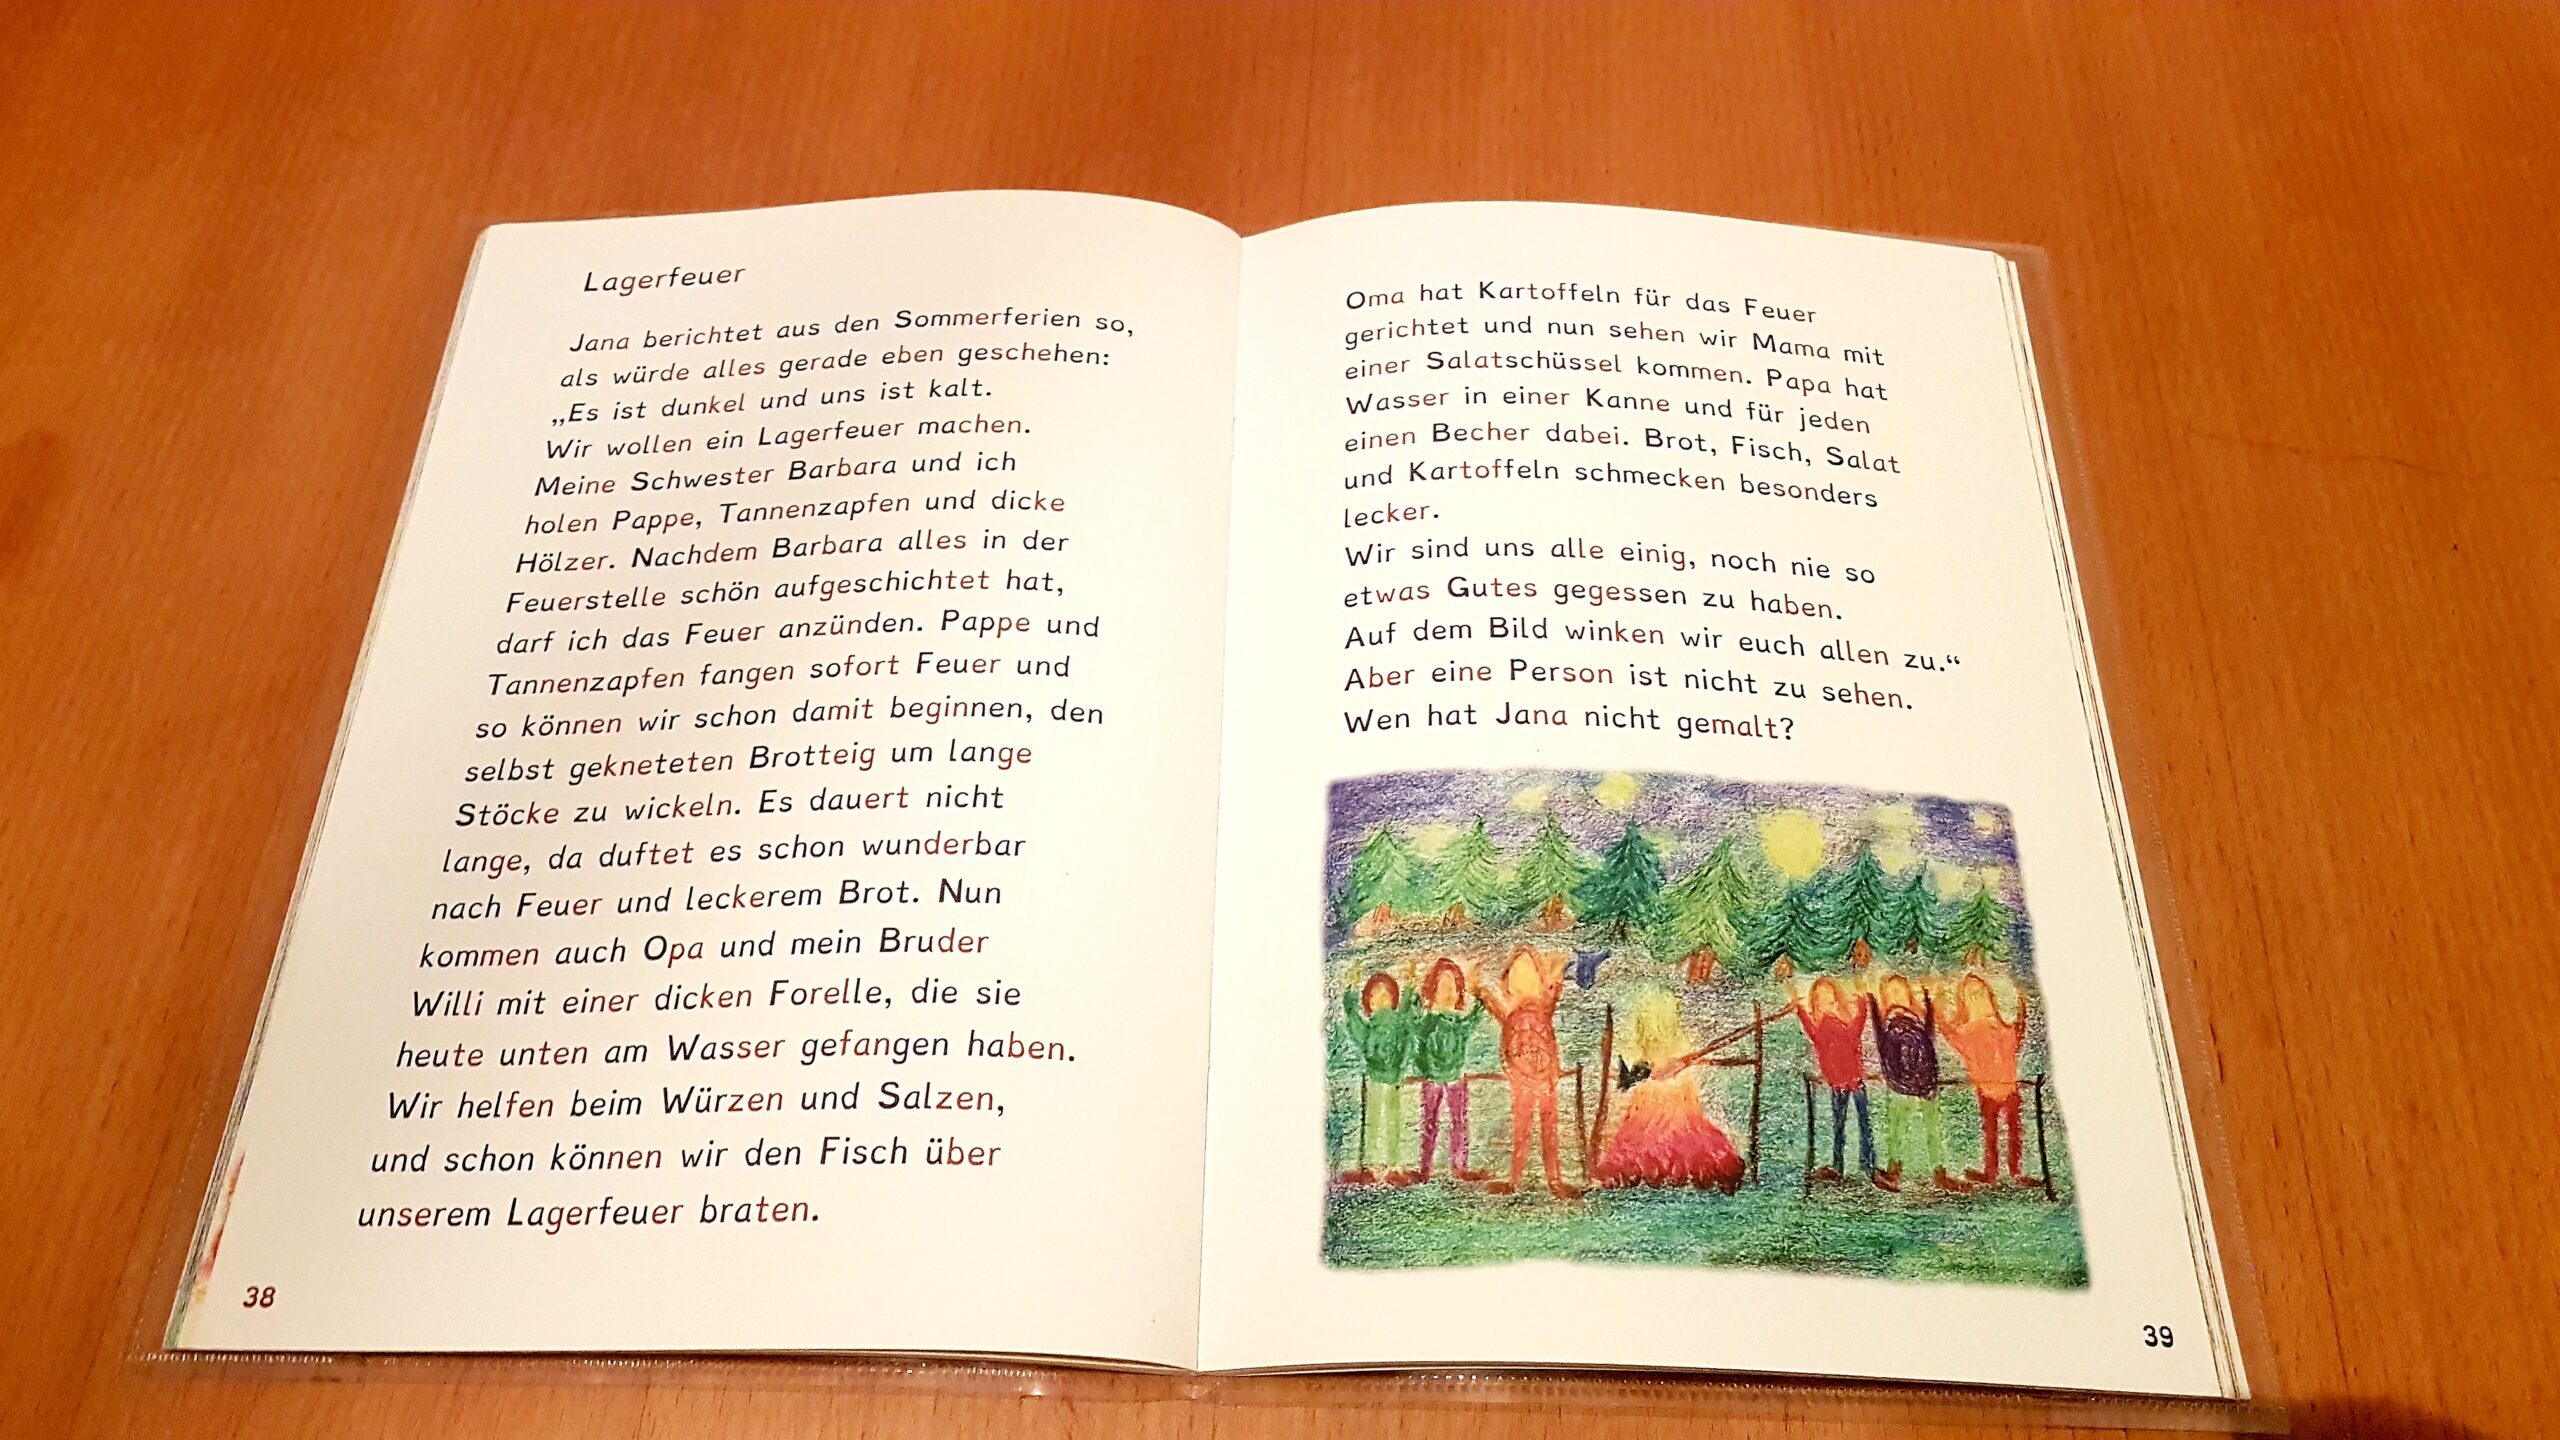 Lagerfeuer
Jana berichtet aus den Sommerferien so,
als würde alles gerade eben geschehen:
„Es ist dunkel und uns ist kalt.
Wir wollen ein Lagerfeuer machen.
Meine Schwester Barbara und ich
holen Pappe, Tannenzapfen und dicke
Hölzer. Nachdem Barbara alles in der
Feuerstelle schön aufgeschichtet hat,
darf ich das Feuer anzünden. Pappe und
Tannenzapfen fangen sofort Feuer und
so können wir schon damit beginnen, den
selbst gekneteten Brotteig um lange
Stöcke zu wickeln. Es dauert nicht
lange, da duftet es schon wunderbar
nach Feuer und leckerem Brot. Nun
kommen auch Opa und mein Bruder
Willi mit einer dicken Forelle, die sie
heute unten am Wasser gefangen haben.
Wir helfen beim Würzen und Salzen,
und schon können wir den Fisch über
unserem Lagerfeuer braten.
38
Oma hat Kartoffeln für das Feuer
gerichtet und nun sehen wir Mama mit
einer Salatschüssel kommen. Papa hat
Wasser in einer Kanne und für jeden
einen Becher dabei. Brot, Fisch, Salat
und Kartoffeln schmecken besonders
lecker.
Wir sind uns alle einig, noch nie so
etwas Gutes gegessen zu haben.
Auf dem Bild winken wir euch allen zu.“
Aber eine Person ist nicht zu sehen.
Wen hat Jana nicht gemalt?
39